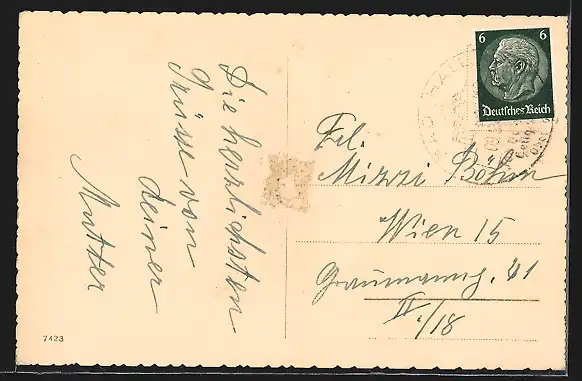 Die herzlichsten
Grüsse von
deiner
Mutter
6 6
Deutsches Reich
BAD HALL
Frl.
Mizzi Böhm
Wien 15
Graumanng. 41
IV./18
7423